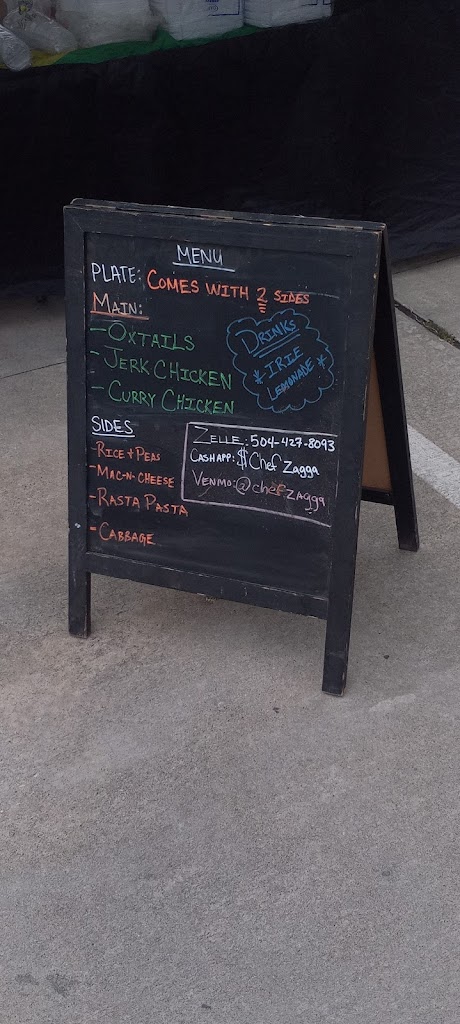 MENU
PLATE: COMES WITH 2 SIDES
MAIN:
- OXTAILS
- JERK CHICKEN
- CURRY CHICKEN
DRINKS
* IRIE *
LEMONADE
SIDES
- RICE + PEAS
- MAC-N-CHEESE
- RASTA PASTA
- CABBAGE
ZELLE: 504-427-8093
CASHAPP: $Chef Zagga
VENMO: @chefzagga